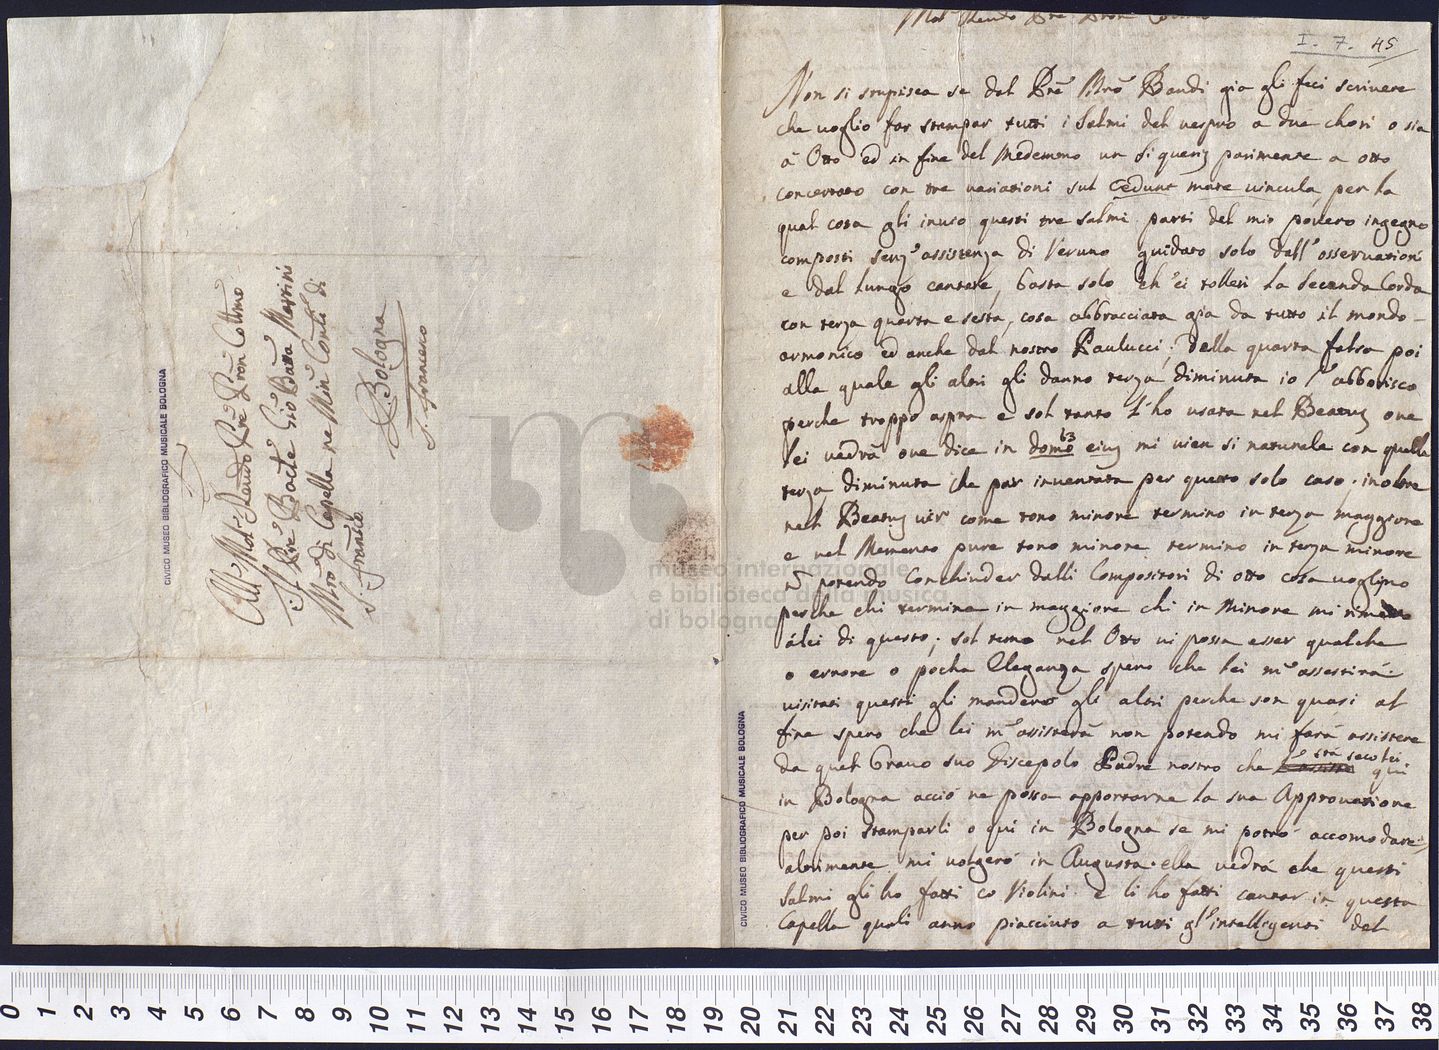 All' Molt Revdo Pre Pron Collmo
Il Pre Baclle Gio Batta Martini
Mro di Capella ne Min Contli di
S. Francesco.
Bologna
S. Francesco
CIVICO MUSEO BIBLIOGRAFICO MUSICALE BOLOGNA
museo internazionale
e biblioteca della musica
di bologna
CIVICO MUSEO BIBLIOGRAFICO MUSICALE BOLOGNA
Molt Revdo Pre Pron
I. 7. 45
Non si stupisca se dal Pre Mro Bandi gia gli feci scrivere
che voglio far stampar tutti i Salmi del vespro a due chori o sia
à Otto ed in fine del Medemmo un Si queris parimente a otto
concertato con tre variationi sul Cedunt mare vincula, per la
qual cosa gli invio questi tre salmi parti del mio povero ingegno
composti senz' assistenza di Veruno guidato solo dall' osservationi
e dal lungo cantare, basta solo ch' ei tolleri la Seconda Corda
con terza quarta e sesta, cosa abbracciata gia da tutto il mondo
armonico ed anche dal nostro Paulucci; Della quarta falsa poi
alla quale gli altri gli danno terza diminuta io l' abborisco
perche troppo aspra e sol tanto l'ho usata nel Beatus ove
lei vedrà ove dice in domo eius mi vien si naturale con quella
b3
terza diminuta che par inventata per questo solo caso. inoltre
nel Beatus vir come tono minore termino in terza maggiore
e nel Memento pure tono minore termino in terza minore
nò potendo Conchiuder dalli Compositori di otto cosa voglino
perche chi termina in maggiore chi in Minore mi
à lei di questo; sol temo nel Otto vi possa esser qualche
o errore o pocha Eleganza spero che lei m' assestirà.
visitati questi gli manderò gli altri perche son quasi al
fine spero che lei m' assisterà non potendo mi farà assistere
da quel bravo suo Discepolo Padre nostro che stà seco lei qui
in Bologna acciò ne possa apportarne la sua Approvatione
per poi stamparli o qui in Bologna se mi potrò accomodare,
altrimente mi volgerò in Augusta. ella vedrà che questi
Salmi gli ho fatti co Violini e li ho fatti cantar in questa
Capella quali anno piacciuto a tutti gl' intelligenti del
0 1 2 3 4 5 6 7 8 9 10 11 12 13 14 15 16 17 18 19 20 21 22 23 24 25 26 27 28 29 30 31 32 33 34 35 36 37 38